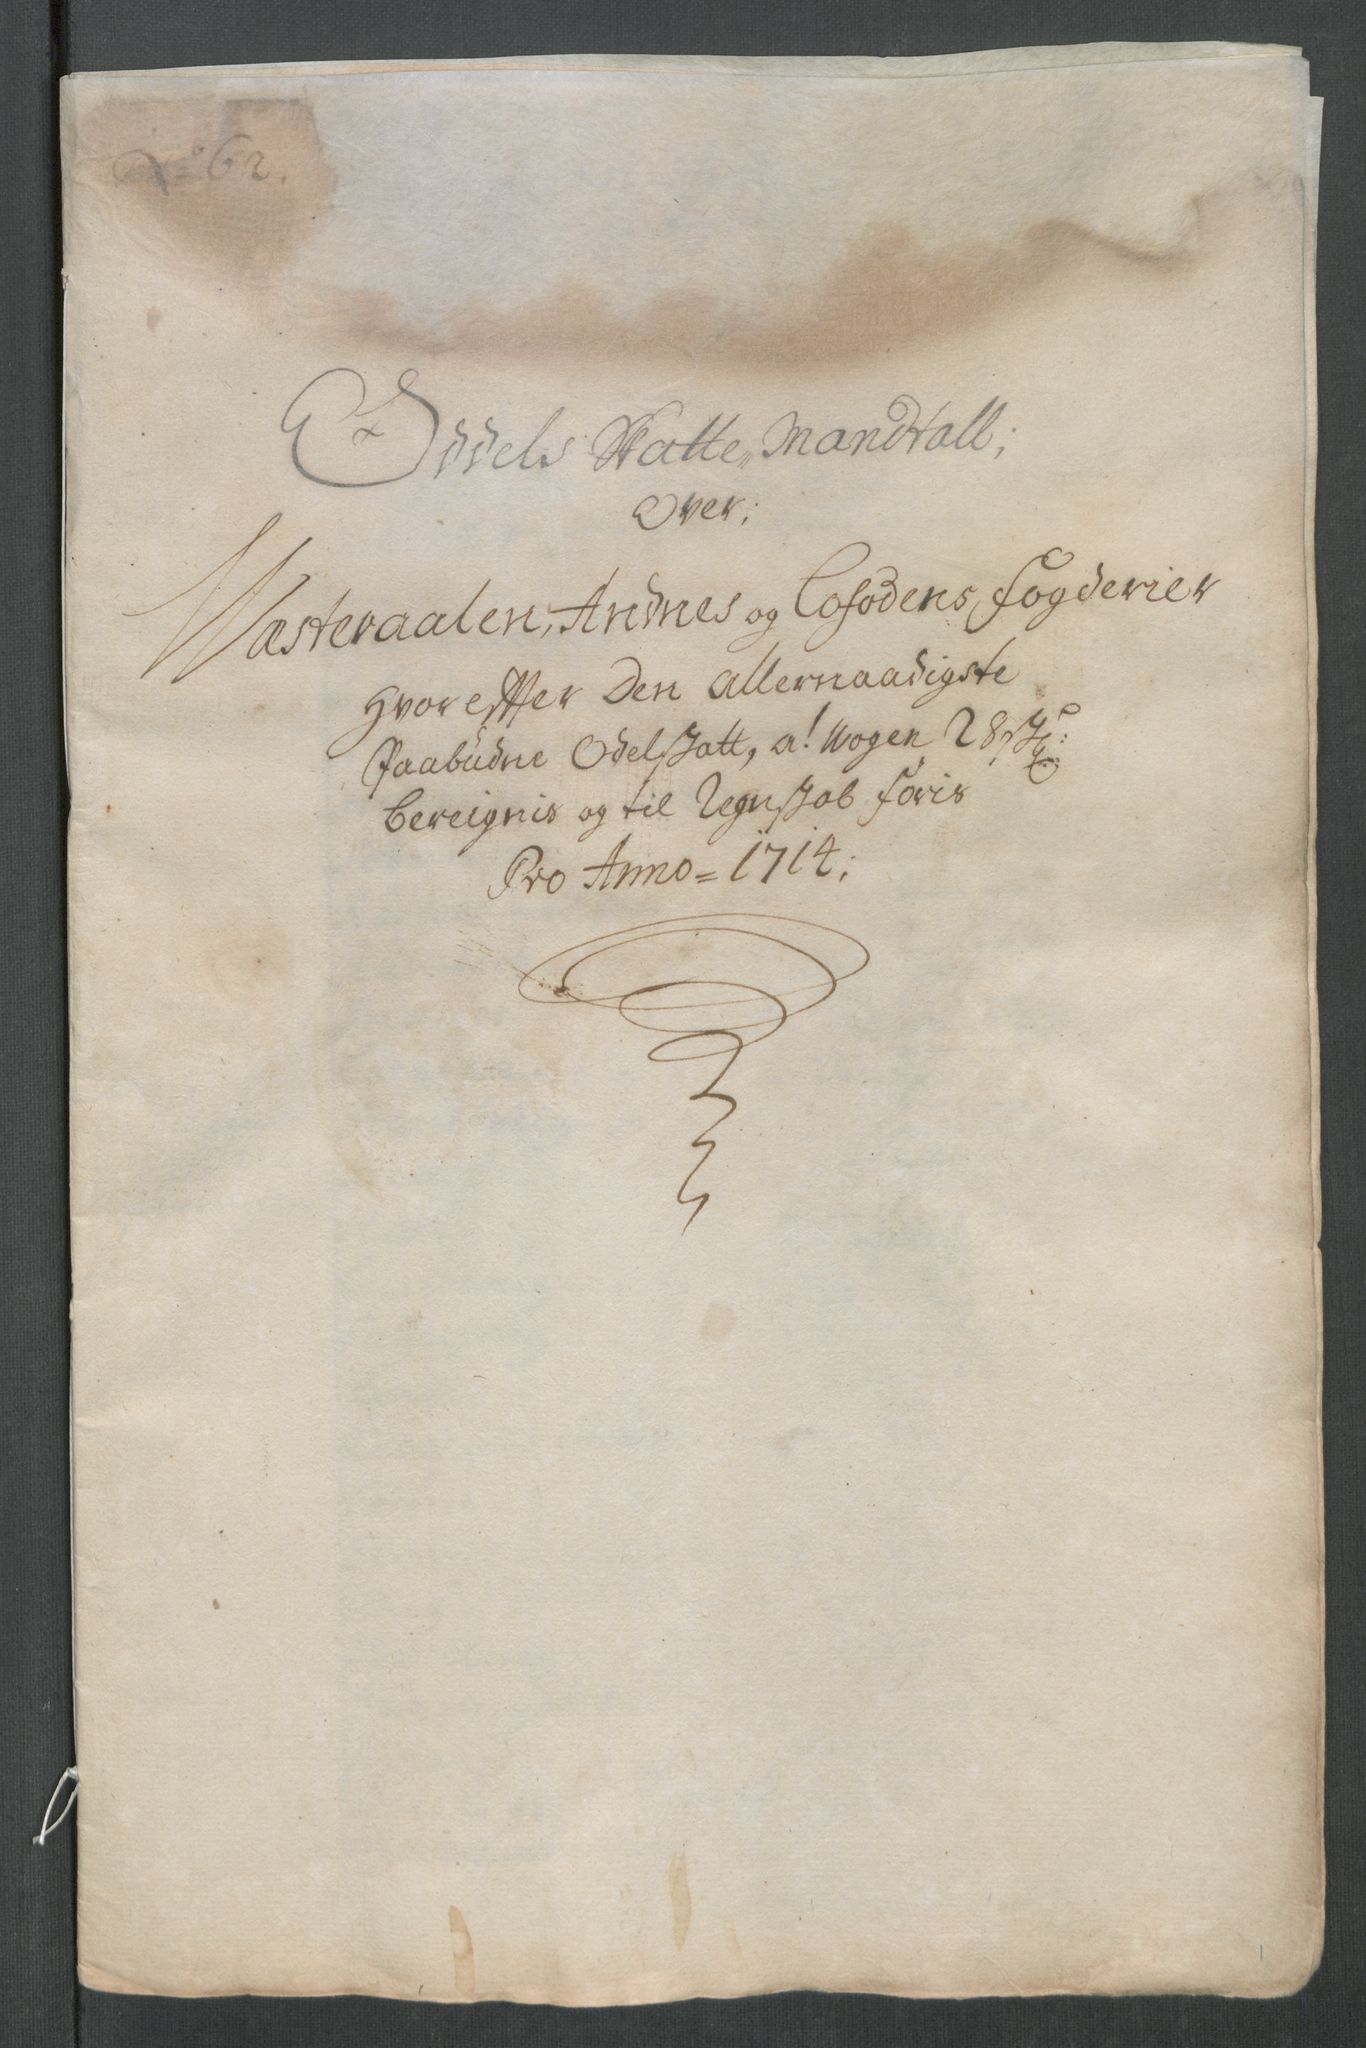 No 62.
Oddels Skatte Mandtall;
Over;
Wæsteraalen, Andnes og Lofodens fogderier
Hvorefter Den Allernaadigste
Paabudne Odelskatt, a! Wogen 28 sk:
bereignis og til Regnskab føris
Pro Anno = 1714;